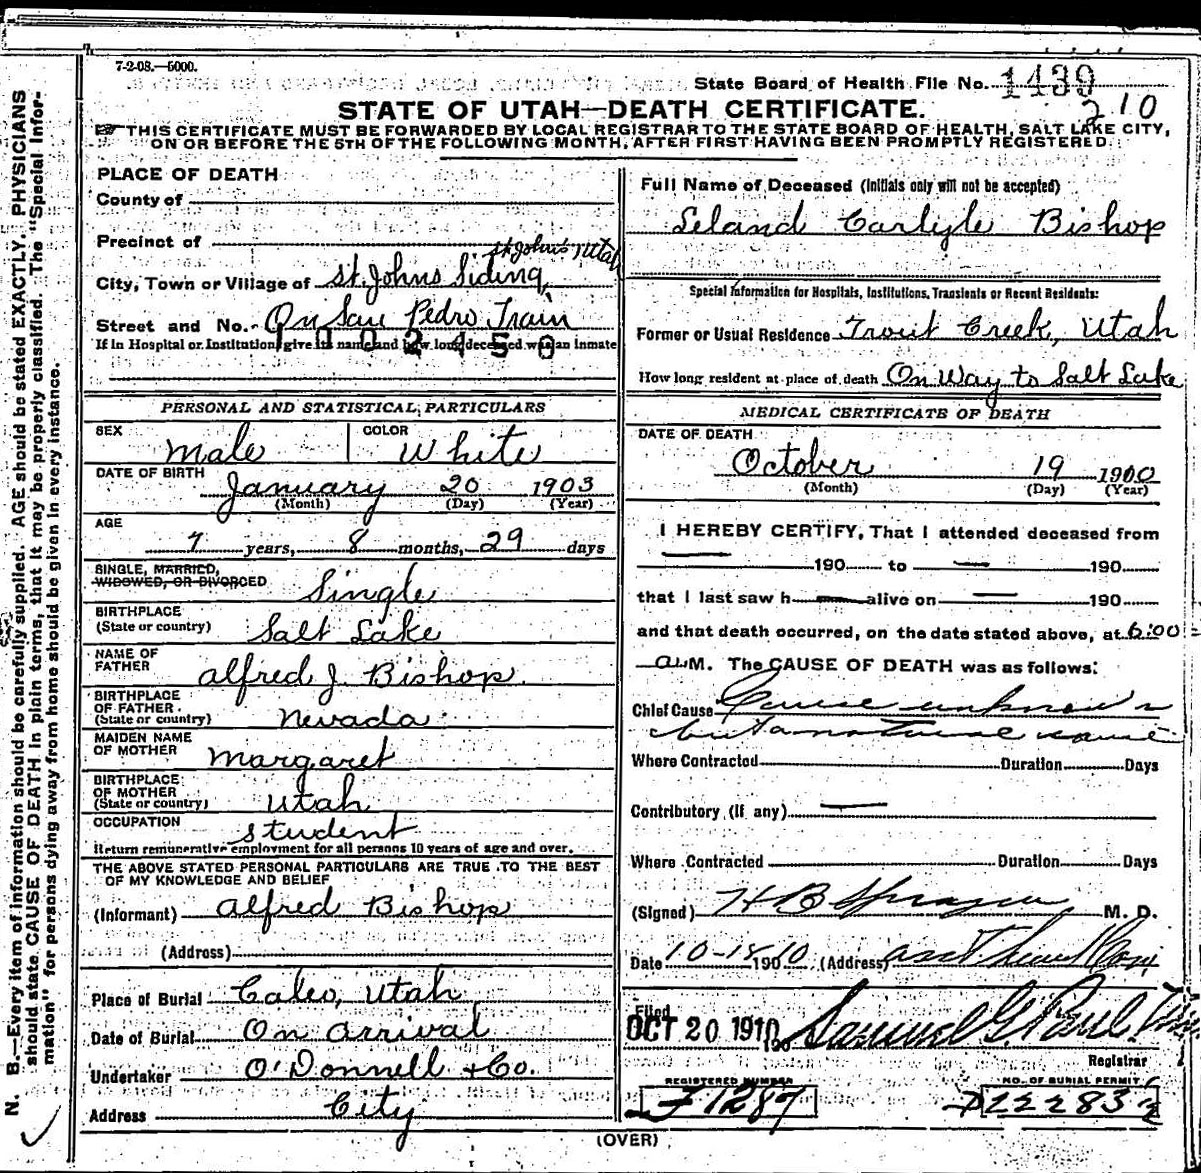 7-2-08.—5000.
State Board of Health File No. 1439
210
STATE OF UTAH—DEATH CERTIFICATE.
THIS CERTIFICATE MUST BE FORWARDED BY LOCAL REGISTRAR TO THE STATE BOARD OF HEALTH, SALT LAKE CITY,
ON OR BEFORE THE 5TH OF THE FOLLOWING MONTH, AFTER FIRST HAVING BEEN PROMPTLY REGISTERED.
PLACE OF DEATH
County of
Precinct of
St Johns Utah
City, Town or Village of St. Johns Siding,
Street and No. On San Pedro Train
If in Hospital or Institution, give its name and how long deceased was an inmate
PERSONAL AND STATISTICAL PARTICULARS
SEX Male COLOR White
DATE OF BIRTH January 20 1903
(Month) (Day) (Year)
AGE
7 years, 8 months, 29 days
SINGLE, MARRIED,
WIDOWED, OR DIVORCED Single
BIRTHPLACE
(State or country) Salt Lake
NAME OF
FATHER Alfred J. Bishop.
BIRTHPLACE
OF FATHER.
(State or country) Nevada
MAIDEN NAME
OF MOTHER Margaret
BIRTHPLACE
OF MOTHER
(State or country) Utah
OCCUPATION student
Return remunerative employment for all persons 10 years of age and over.
THE ABOVE STATED PERSONAL PARTICULARS ARE TRUE TO THE BEST
OF MY KNOWLEDGE AND BELIEF
(Informant) Alfred Bishop
(Address)
Place of Burial Caleo, Utah
Date of Burial On arrival
Undertaker O'Donnell & Co.
Address City
Full Name of Deceased (Initials only will not be accepted)
Leland Carlyle Bishop
Special Information for Hospitals, Institutions, Transients or Recent Residents:
Former or Usual Residence Trout Creek, Utah
How long resident at place of death On Way to Salt Lake
MEDICAL CERTIFICATE OF DEATH
DATE OF DEATH
October 19 1910
(Month) (Day) (Year)
I HEREBY CERTIFY, That I attended deceased from
190 to 190
that I last saw h alive on 190
and that death occurred, on the date stated above, at 6:00
a.M. The CAUSE OF DEATH was as follows:
Chief Cause Cause unknown
but a natural cause
Where Contracted Duration Days
Contributory (if any)
Where Contracted Duration Days
(Signed) H B Sprague M. D.
Date 10-18 1910 (Address)
Filed
OCT 20 1910 Samuel G. Paul
Registrar
REGISTERED NUMBER NO. OF BURIAL PERMIT
F 1287 D 12283
(OVER)
N. B.—Every item of information should be carefully supplied. AGE should be stated EXACTLY. PHYSICIANS
should state CAUSE OF DEATH in plain terms, that it may be properly classified. The "Special Information" for persons dying away from home should be given in every instance.